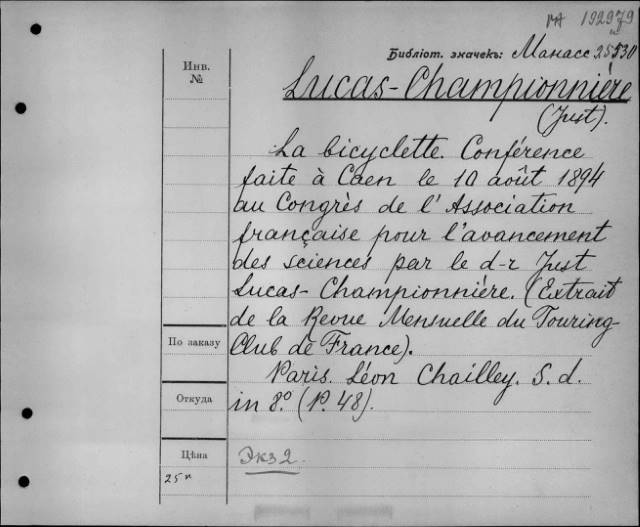 МА 192979
Библіот. значекъ: Манасс 25530
Инв.
№
Lucas-Championnière
(Just).
La bicyclette. Conférence
faite à Caen le 10 août 1894
au Congrès de l'Association
française pour l'avancement
des sciences par le d-r Just
Lucas-Championnière. (Extrait
de la Revue Mensuelle du Touring-
По заказу
Club de France).
Paris. Léon Chailley. S. d.
Откуда
in 8º. (P. 48).
Цѣна
Экз 2.
25 к